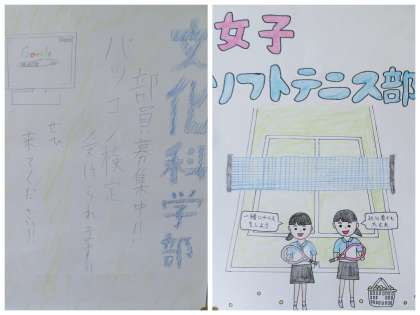 文化科学部
部員募集中!!
パソコン検定
受けられます!!
ぜひ
来てください!!
Google
女子
ソフトテニス部
一緒にテニス
をしよう
初心者でも
大丈夫